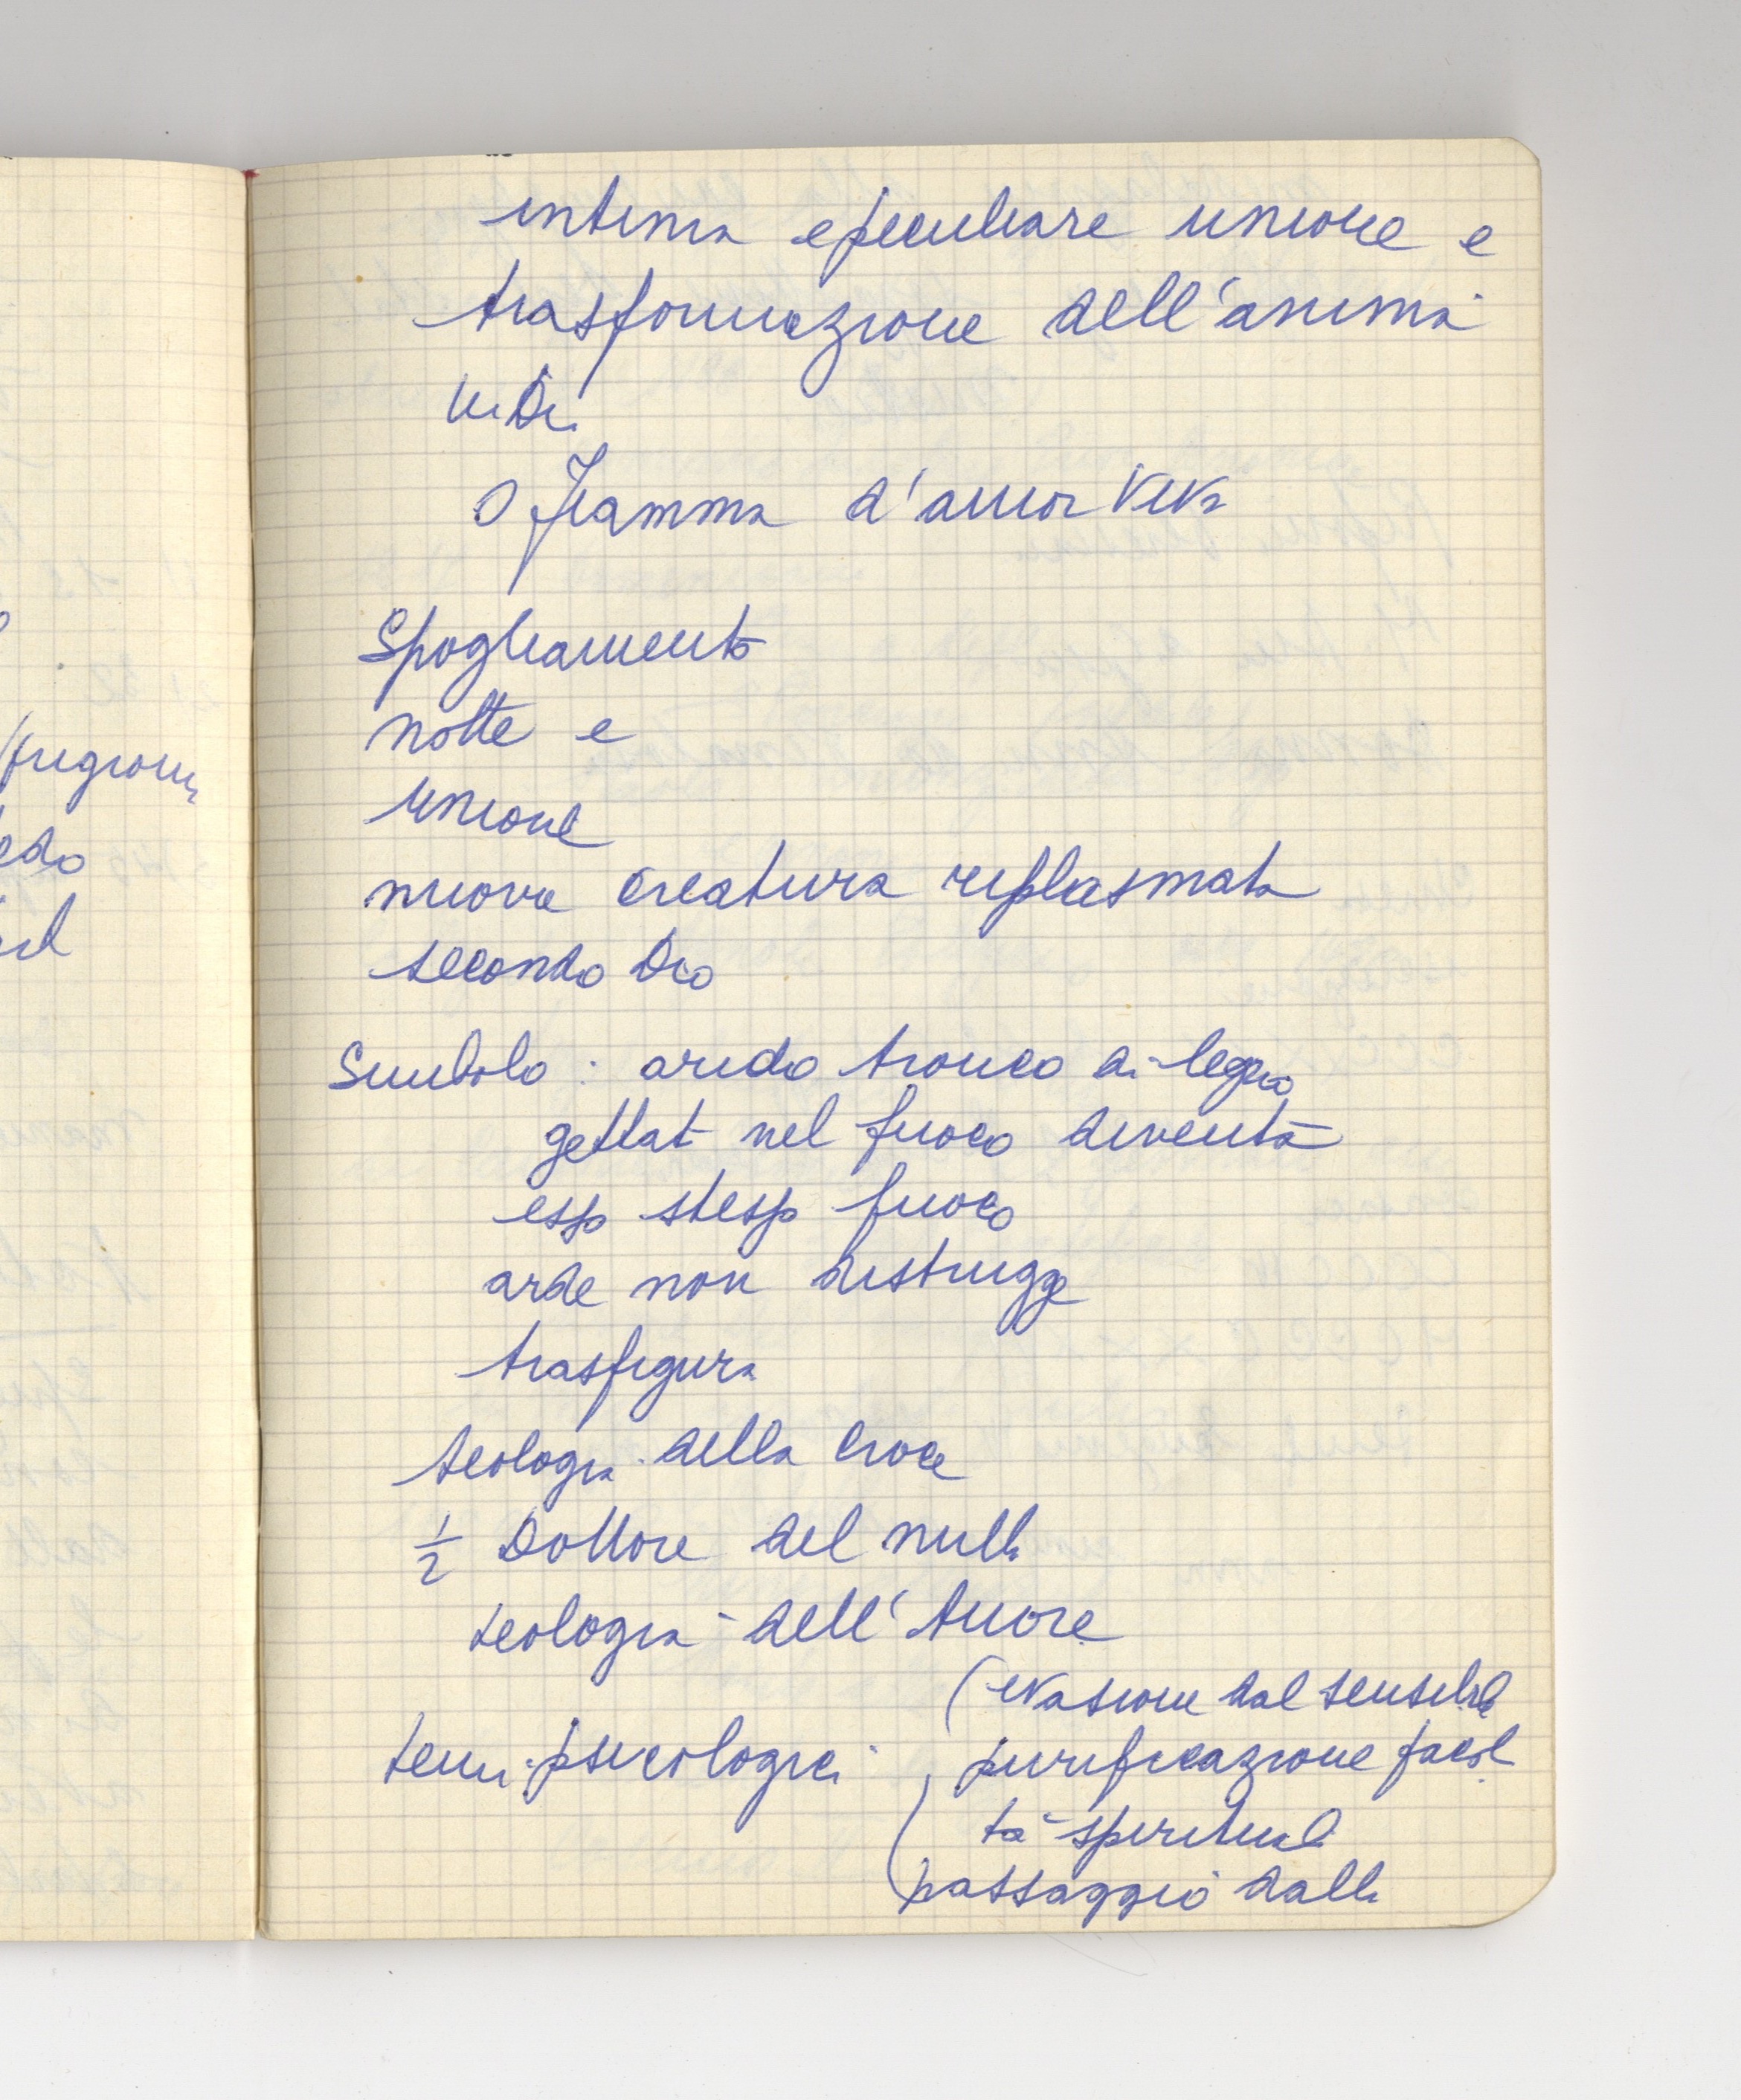 intima e peculiare unione e
trasformazione dell'anima
in Dio
O fiamma d'amor viva
Spogliamento
notte e
unione
nuova creatura riplasmata
secondo Dio
Simbolo : arido tronco di legno
gettat nel fuoco diventa
esso stesso fuoco
arde non distrugge
trasfigura
teologia della Croce
1/2 Dottore del nulla
teologia dell'Amore
(evasione dal sensibile
temi psicologici purificazione facol
tà spirituali
passaggio dalla
edo